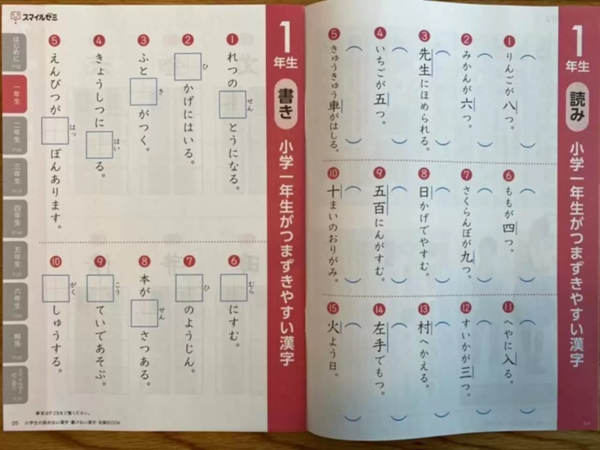 1年生 読み 小学一年生がつまずきやすい漢字
① りんごが八つ。
② みかんが六つ。
③ 先生にほめられる。
④ いちごが五つ。
⑤ きゅうきゅう車がはしる。
⑥ ももが四つ。
⑦ さくらんぼが九つ。
⑧ 日かげでやすむ。
⑨ 五百にんがすむ。
⑩ 十まいのおりがみ。
⑪ へやに入る。
⑫ すいかが三つ。
⑬ 村へかえる。
⑭ 左手でもつ。
⑮ 火よう日。
1年生 書き 小学一年生がつまずきやすい漢字
① れつの□せんとうになる。
② □ひかげにはいる。
③ ふと□きがつく。
④ きょうしつに□はいる。
⑤ えんぴつが□はっぽんあります。
⑥ □むらにすむ。
⑦ □ひのようじん。
⑧ 本が□せんさつある。
⑨ □こうていであそぶ。
⑩ □がくしゅうする。
スマイルゼミ
はじめに
一年生
二年生
三年生
四年生
五年生
六年生
解答
小学生の読めない漢字 書けない漢字 攻略BOOK